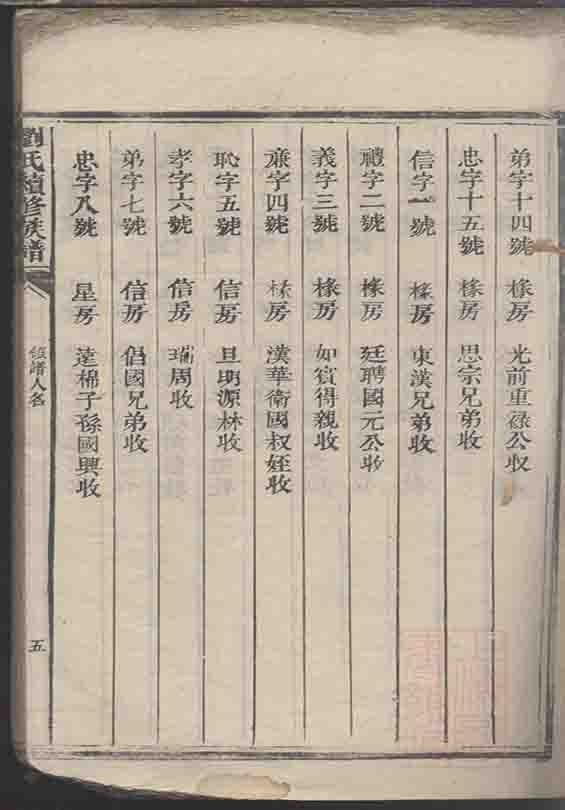 弟字十四號 椽房 光前重祿公収
忠字十五號 椽房 思宗兄弟收
信字一號 椽房 東漢兄弟收
禮字二號 椽房 廷聘國元公收
義字三號 椽房 如賓得親收
亷字四號 椽房 漢華衛國叔姪收
恥字五號 信房 旦明源林收
孝字六號 信房 瑞周收
弟字七號 信房 倡國兄弟收
忠字八號 星房 達棉子孫國興收
劉氏續修族譜
領譜人名
五